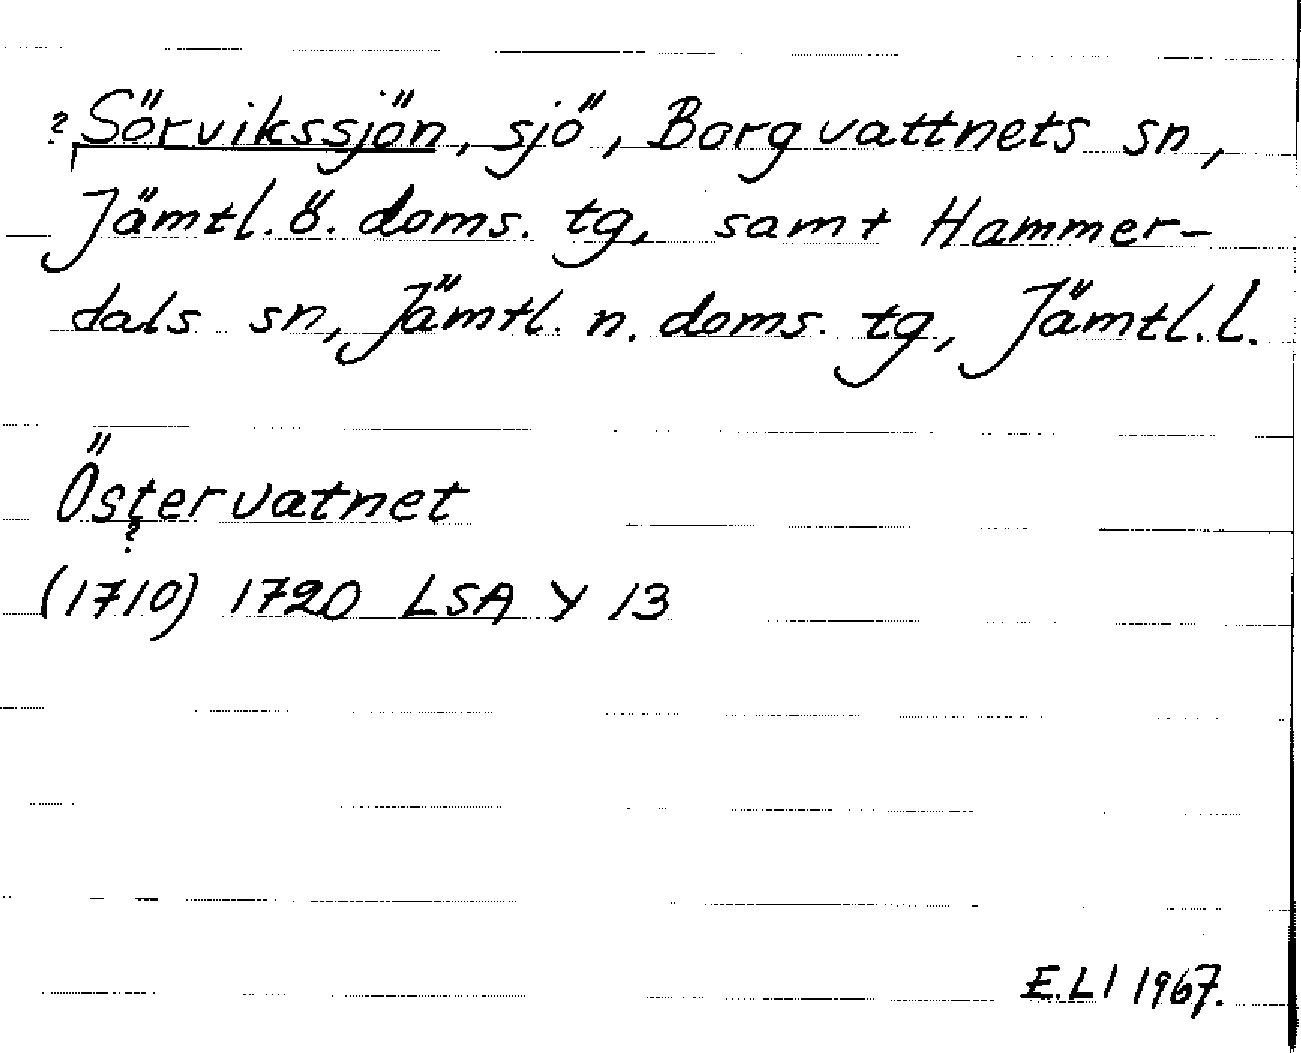 ? Sörvikssjön, sjö, Borgvattnets sn,
Jämtl. ö. doms. tg, samt Hammer-
dals sn, Jämtl. n. doms. tg, Jämtl. l.
Östervatnet
?
(1710) 1720 LSA Y 13
E.L. 1967.